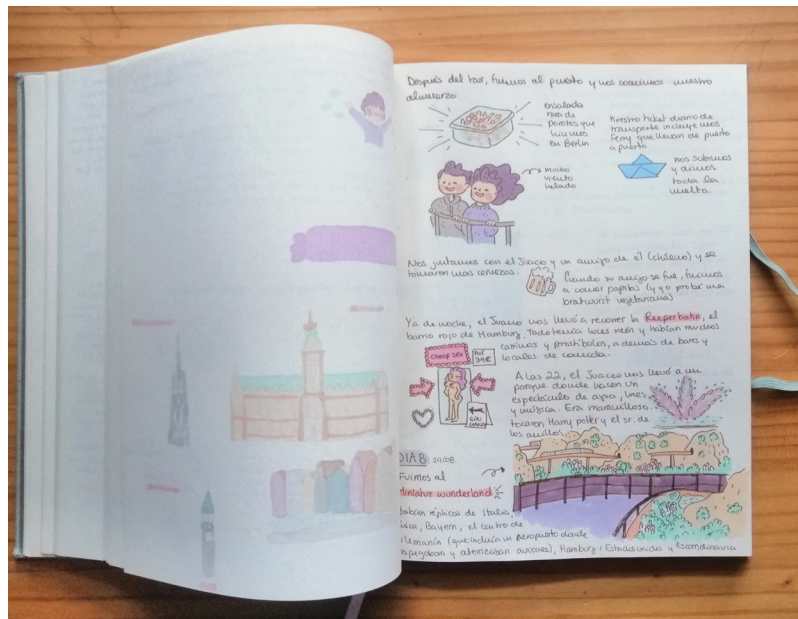 Después del tour, fuimos al puerto y nos comimos nuestro
almuerzo
ensalada
rara de
porotos que
hicimos
en Berlin
nuestro ticket diario de
transporte incluye unos
ferry que llevan de puerto
a puerto
mucho
viento
helado
nos subimos
y dimos
toda la
vuelta
Nos juntamos con el Juaco y un amigo de él (chileno) y se
tomaron unas cervezas.
Cuando su amigo se fue, fuimos
a comer papitas (y yo probé una
bratwurst vegetariana)
Ya de noche, el Juaco nos llevó a recorrer la Reeperbahn, el
barrio rojo de Hamburg. Todo tenía luces neón y habían muchos
casinos y prostíbulos, además de bares y
locales de comida.
CHEAP SEX
39€
A las 22, el Juaco nos llevó a un
parque donde hacen un
espectáculo de agua, luces
y música. Era maravilloso
tocaron Harry potter y el sr. de
los anillos
DIA 8 29/08
Fuimos al
Miniatur wunderland
habían réplicas de Italia,
Bayern, el centro de
Alemania (que incluía un aeropuerto donde
despegaban y aterrizaban aviones), Hamburg, Estados unidos y Escandinavia